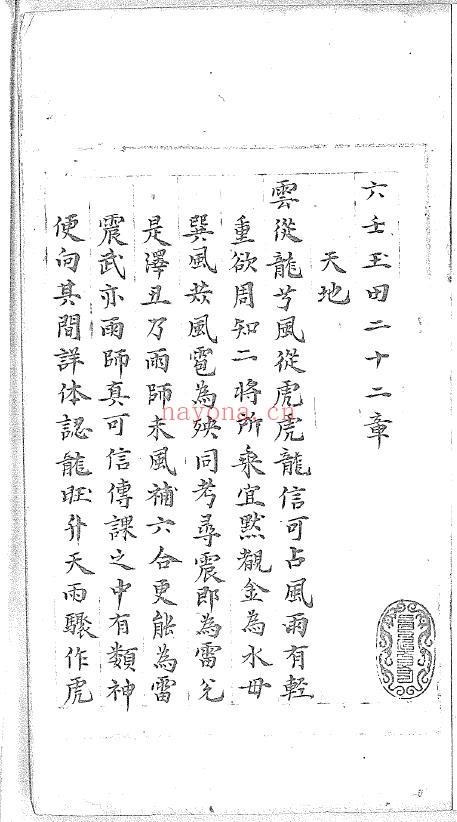 六壬玉田二十二章
天地
雲從龍兮風從虎虎龍信可占風雨有輕
重欲周知二將所乗宜黙覩金為水毋
巽風炎風雹為殃同考尋震即為雷兊
是澤丑乃雨師未風補六合更能為雷
震武亦雨師真可信傳課之中有類神
便向其間詳体認龍旺升天雨驟作虎
nayona.cn